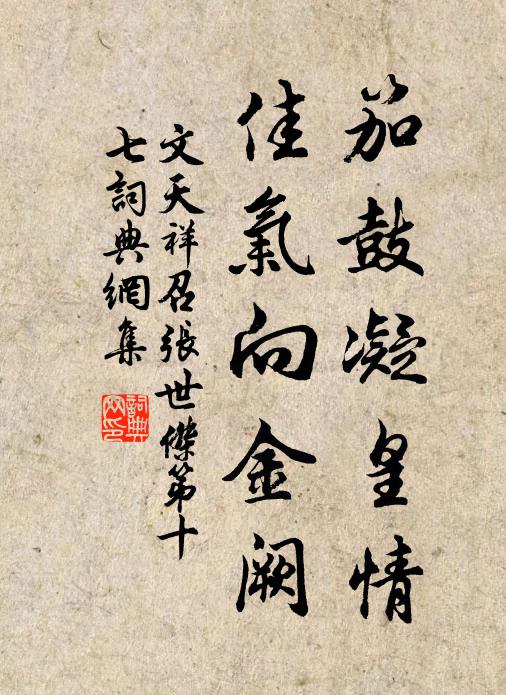 笳鼓凝皇情
佳氣向金闕
文天祥召張世傑第十
七詞典網集
詞典網印